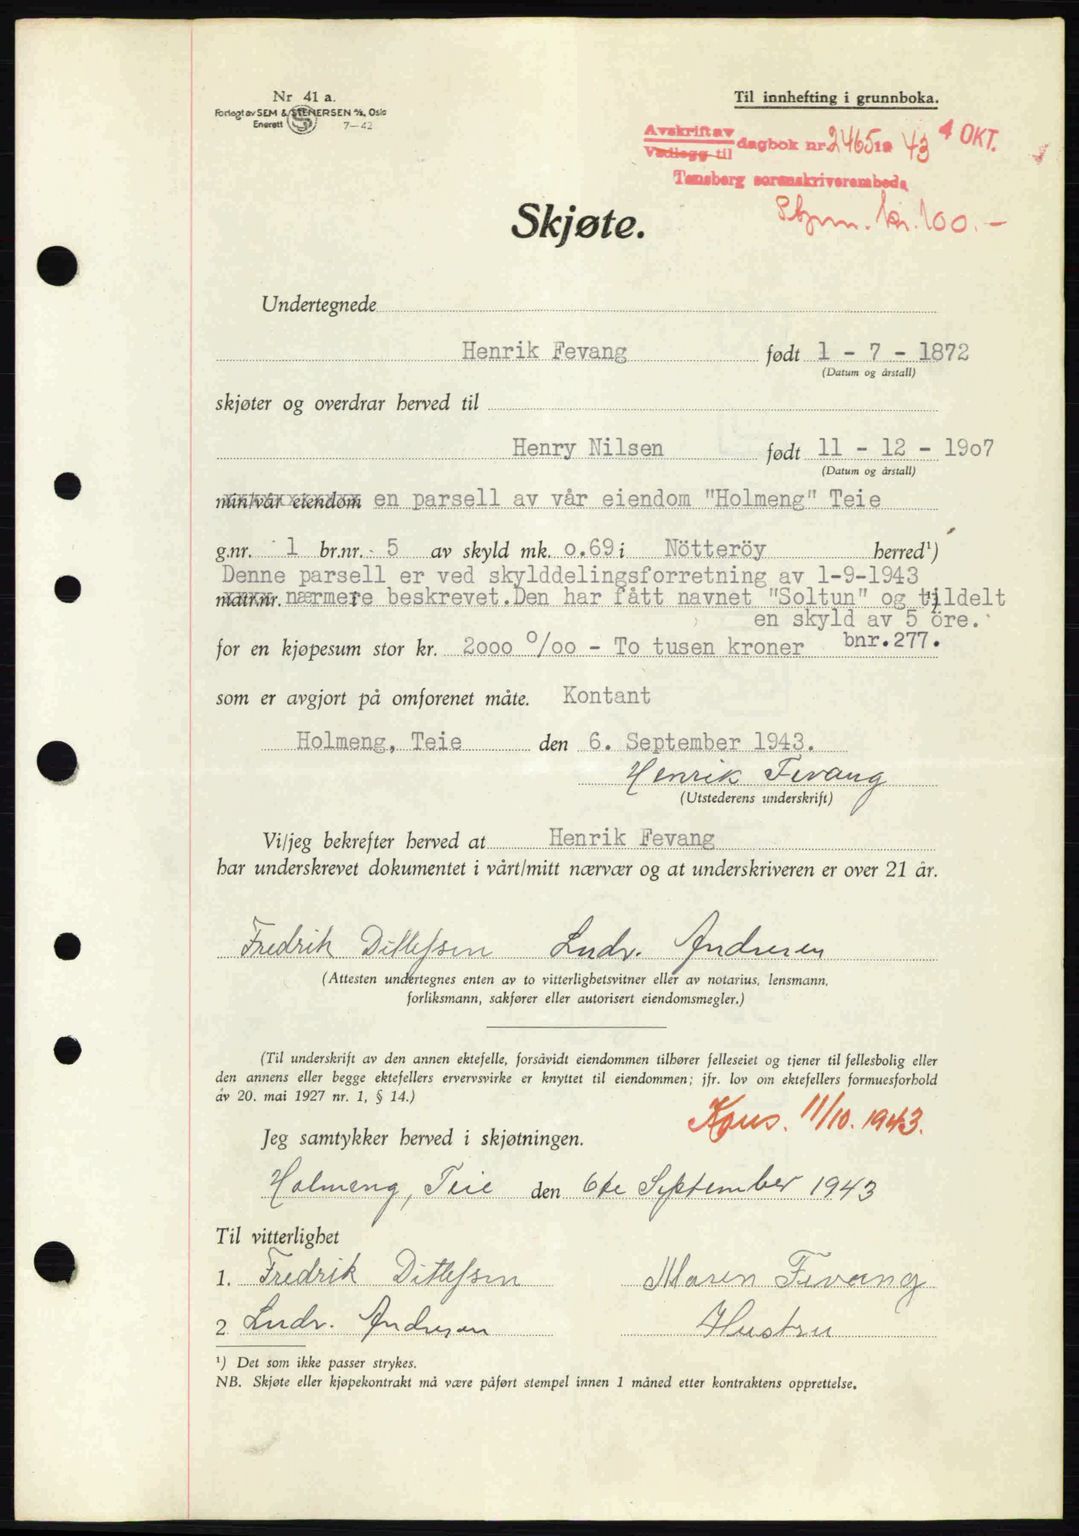 Nr 41 a.
Forlagt av SEM & STENERSEN A/S, Oslo
Enerett 7-42
Til innhefting i grunnboka.
Avskrift av
Vedlegg til dagbok nr 2465 19 43 4 OKT.
Tønsberg sorenskriverembede
Stpm. kr. 100.-
Skjøte.
Undertegnede
Henrik Fevang født 1 - 7 - 1872
(Datum og årstall)
skjøter og overdrar herved til
Henry Nilsen født 11 - 12 - 19o7
(Datum og årstall)
min/vår eiendom en parsell av vår eiendom "Holmeng" Teie
g.nr. 1 br.nr. 5 av skyld mk. o.69 i Nötteröy herred¹)
Denne parsell er ved skylddelingsforretning av 1-9-1943
matr.nr. nærmere beskrevet. Den har fått navnet "Soltun" og tildelt
en skyld av 5 öre.
for en kjøpesum stor kr. 2ooo o/oo - To tusen kroner bnr.277.
som er avgjort på omforenet måte. Kontant
Holmeng, Teie den 6. September 1943.
Henrik Fevang
(Utstederens underskrift)
Vi/jeg bekrefter herved at Henrik Fevang
har underskrevet dokumentet i vårt/mitt nærvær og at underskriveren er over 21 år.
Fredrik Ditlefsen Ludv. Andresen
(Attesten undertegnes enten av to vitterlighetsvitner eller av notarius, lensmann,
forliksmann, sakfører eller autorisert eiendomsmegler.)
(Til underskrift av den annen ektefelle, forsåvidt eiendommen tilhører felleseiet og tjener til fellesbolig eller
den annens eller begge ektefellers ervervsvirke er knyttet til eiendommen; jfr. lov om ektefellers formuesforhold
av 20. mai 1927 nr. 1, § 14.)
Kons. 11/10. 1943.
Jeg samtykker herved i skjøtningen.
Holmeng, Teie den 6te September 1943
Til vitterlighet
1. Fredrik Ditlefsen Maren Fevang
2 Ludv. Andresen Hustru
¹) Det som ikke passer strykes.
NB. Skjøte eller kjøpekontrakt må være påført stempel innen 1 måned etter kontraktens opprettelse.